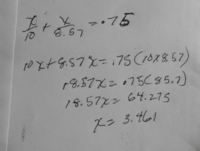 x/10 + x/8.57 = .75
10x + 8.57x = .75(10x8.57)
18.57x = .75(85.7)
18.57x = 64.275
x = 3.461